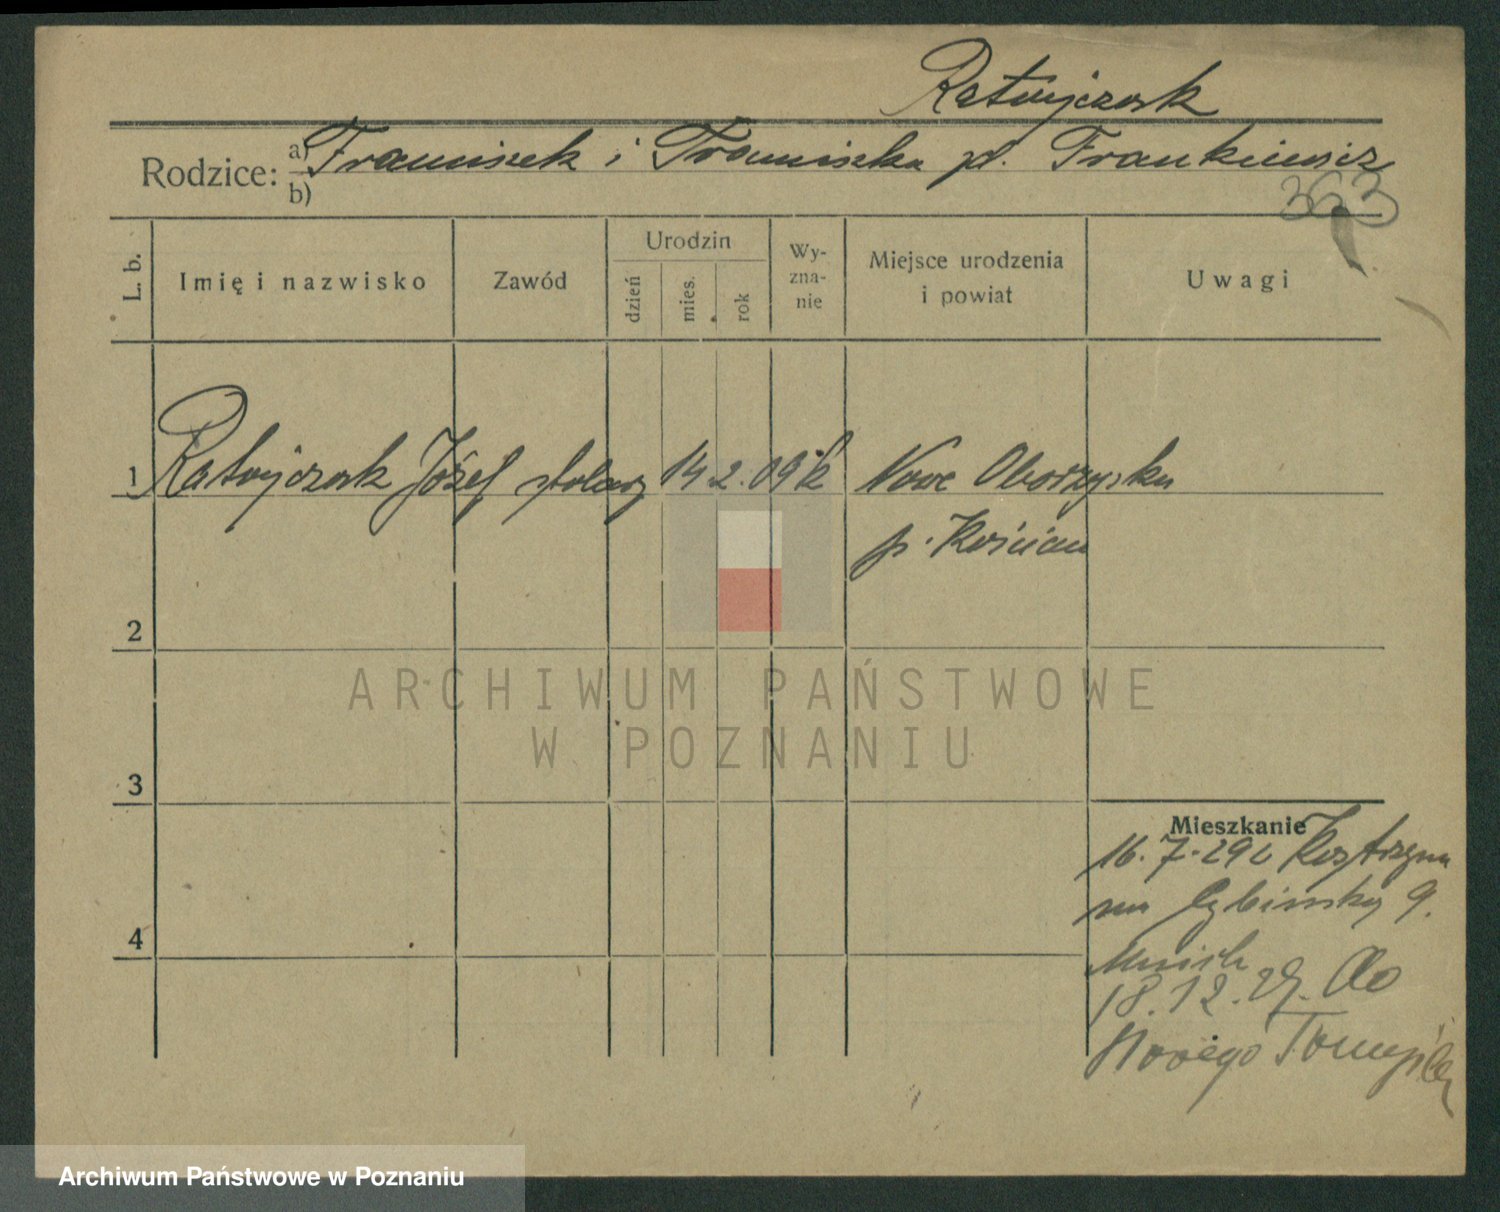 Ratajczak
Rodzice: a) Franciszek i Franciszka zd. Frankiewicz
b)
363
L. b. Imię i nazwisko Zawód Urodzin dzień mies. rok Wy-zna-nie Miejsce urodzenia i powiat Uwagi
1 Ratajczak Józef stolarz 14 2. 09 rk Nowe Oborzyska
p. Kościan
2
3
4
Mieszkanie
16. 7. 29 z Kostrzyna
na Cybińską 9.
18. 12. 29. do
Nowego Tomyśla
ARCHIWUM PAŃSTWOWE
W POZNANIU
Archiwum Państwowe w Poznaniu